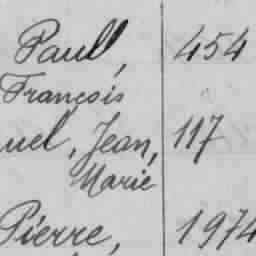 Paull, 454
François
uel, Jean, 117
Marie
Pierre, 1974